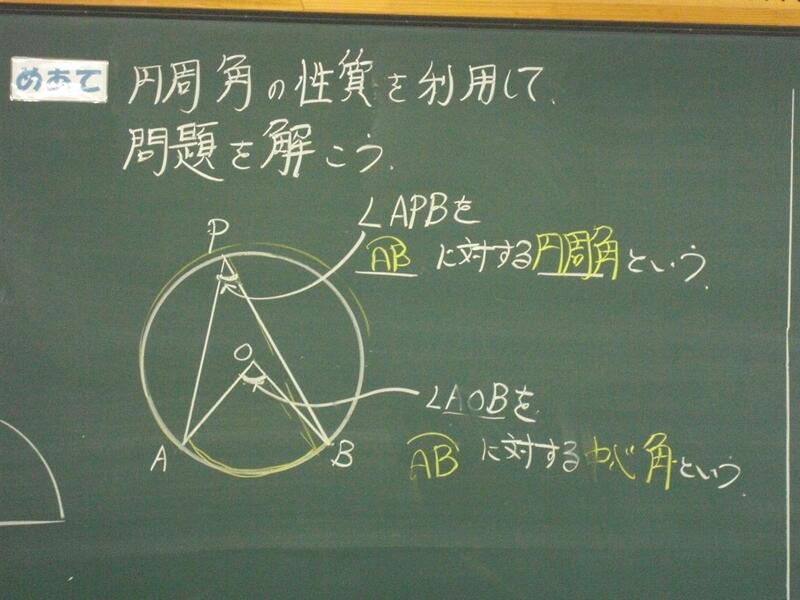 めあて 円周角の性質を利用して、
問題を解こう。
∠APBを
P
AB に対する円周角という。
O
∠AOBを
A
B
AB に対する中心角という。